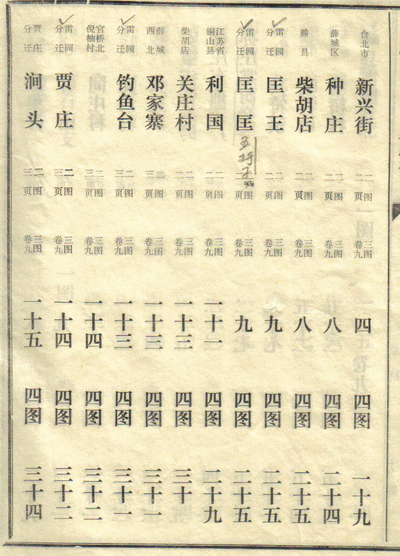 台北市 新兴街 二图二页 三图卷九 四 四图 一十九
薛城区 种庄 二图二页 三图卷九 八 四图 二十四
滕县 柴胡店 二图二页 三图卷九 八 四图 二十五
雷园分迁 匡王 二图二页 三图卷九 九 四图 二十五
雷园分迁 匡匡 二图二页 三图卷九 九 四图 二十五
江苏省铜山县 利国 二图二页 三图卷九 一十一 四图 二十九
柴胡店 关庄村 二图二页 三图卷九 一十三 四图 三十
薛城西北 邓家寨 二图三页 三图卷九 一十三 四图 三十一
雷园分迁 钓鱼台 二图三页 三图卷九 一十三 四图 三十一
官桥北倪楠村 二图三页 三图卷九 一十四 四图 三十二
雷园分迁 贾庄 二图三页 三图卷九 一十四 四图 三十二
贾庄分迁 涧头 二图三页 三图卷九 一十五 四图 三十四